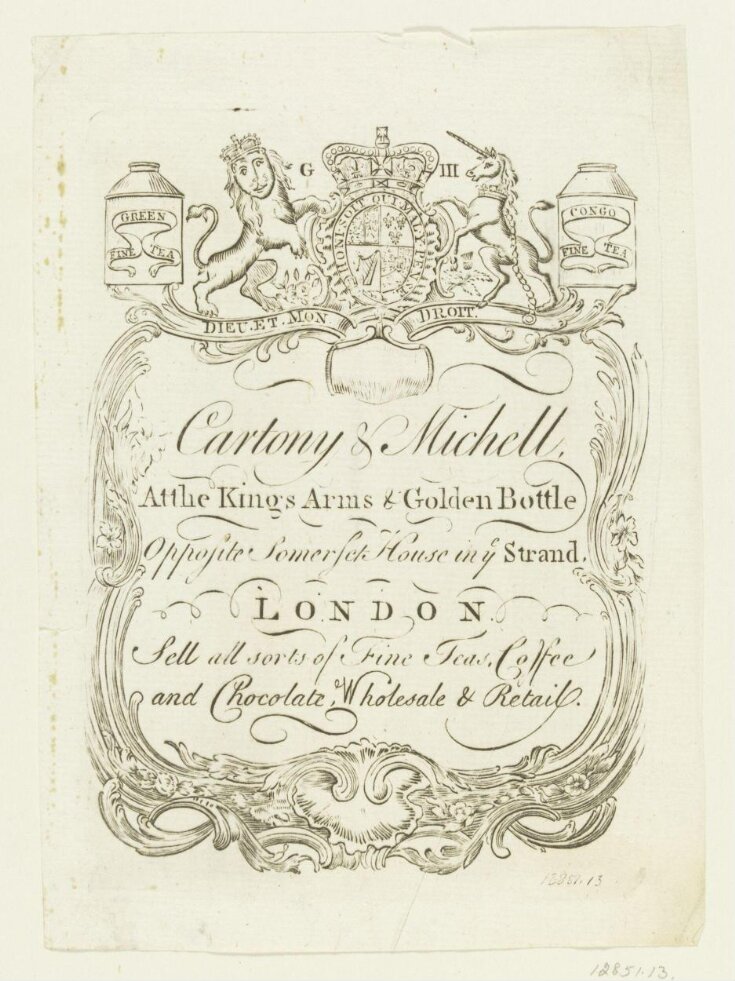 G III
GREEN
FINE TEA
CONGO
FINE TEA
HONI SOIT QUI MAL Y PEN
DIEU.ET.MON DROIT.
Cartony & Michell,
At the Kings Arms & Golden Bottle
Opposite Somerset House in yͤ Strand.
LONDON.
Sell all sorts of Fine Teas, Coffee
and Chocolate, Wholesale & Retail.
12851.13
12851.13.